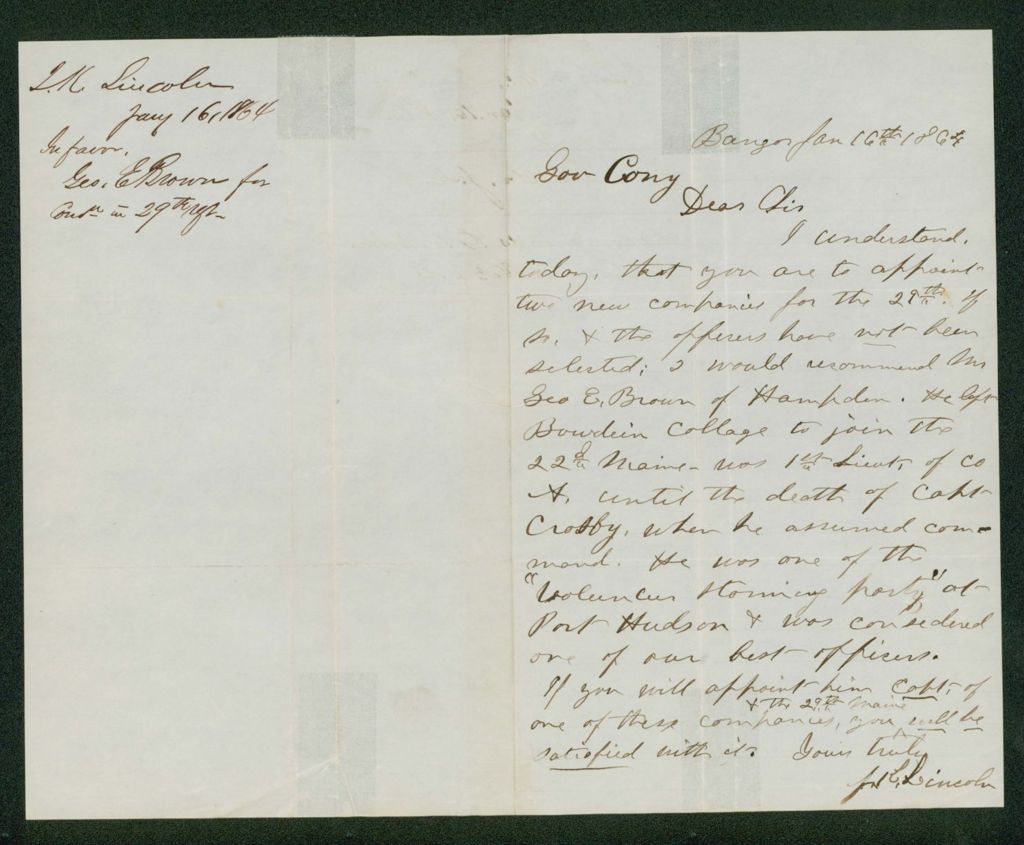 Lincoln
Jany 16, 1864
In favor.
Geo. E Brown for
in 29th
Bangor Jan 16th 1864
Gov Cony
Dear Sir
I understand,
today, that you are to appoint
two new companies for the 29th. If
so, & the officers have not been
selected; I would recommend Mr
Geo E, Brown of Hampden. He left
Bowdein Collage to join the
22d Maine - was 1st Lieut, of Co
A, until the death of Capt
Crosby, when he assumed com-
mand. He was one of the
"Volunteer storming party" at
Port Hudson & was considered
one of our best officers.
If you will appoint him Capt, of
& the 29th Maine
one of these companies, you will be
satisfied with it. Yours truly
Lincoln